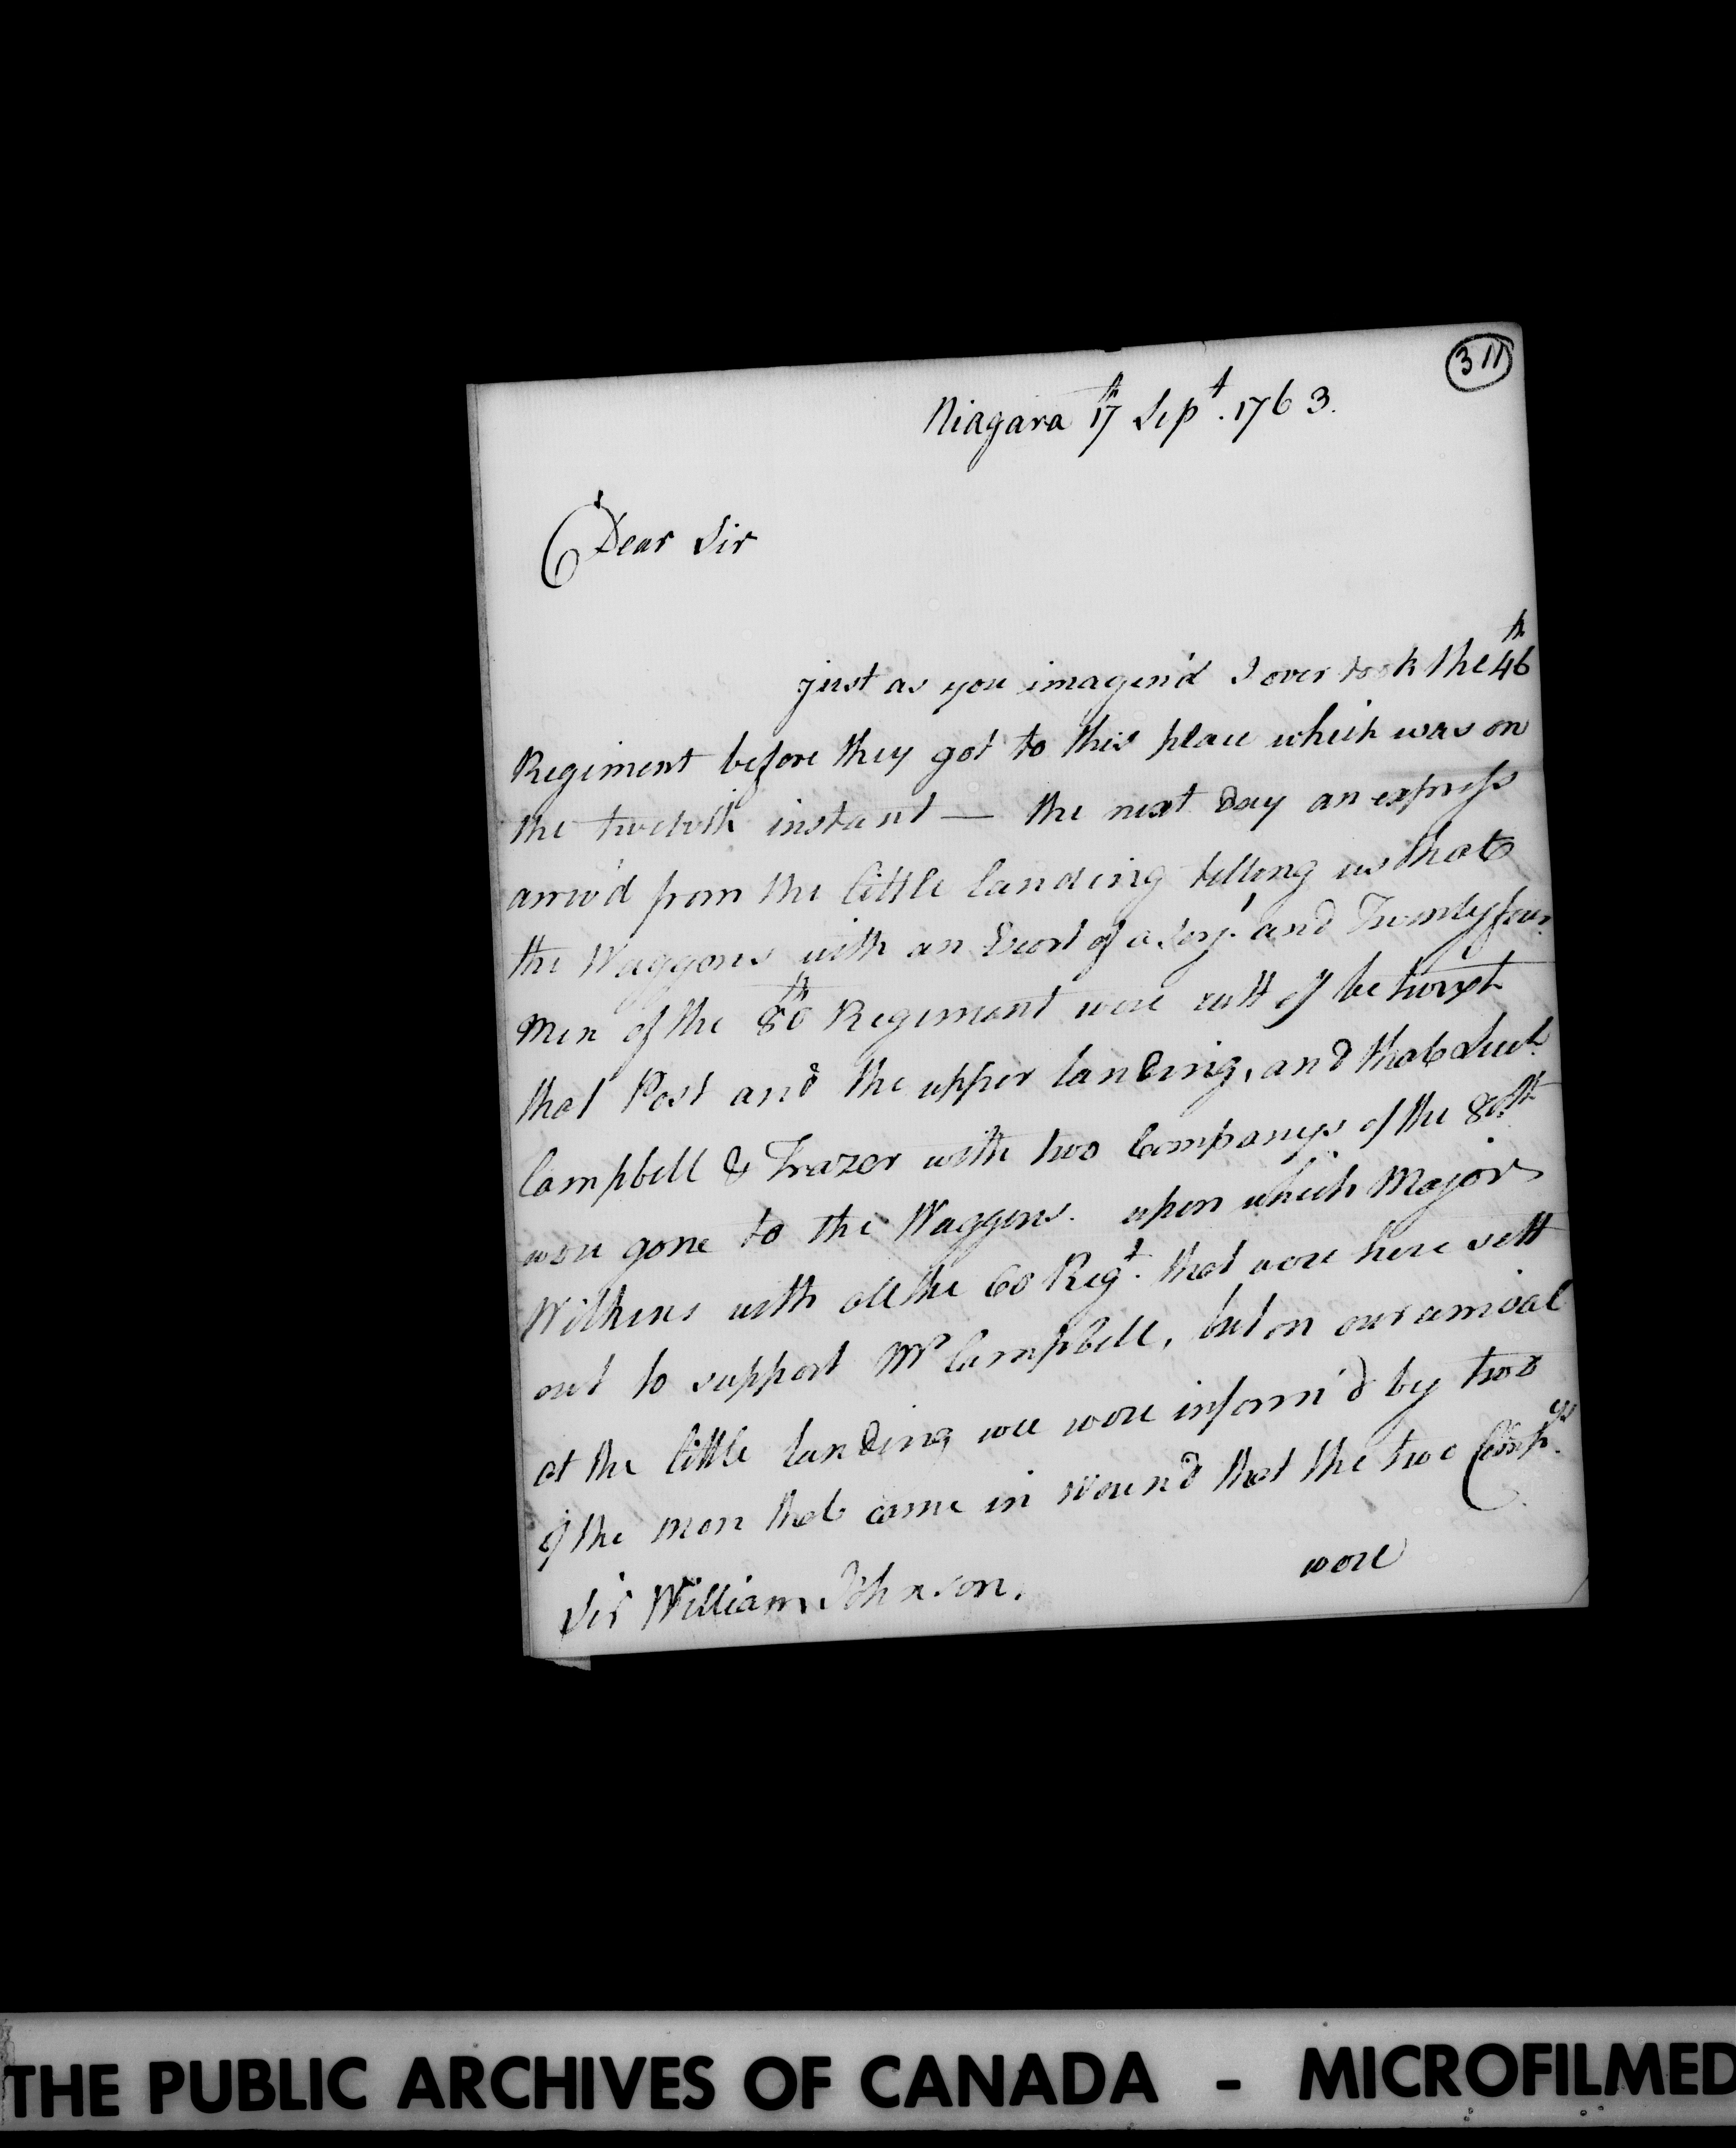 311
Niagara 17th Sept. 1763.
Dear Sir
just as you imagen'd I over took the 46th
Regiment before they got to this place which was on
the twelvth instant — the next day an express
arriv'd from the little landing telling us that
the Waggons with an Escort of a Serjt. and Twenty four
men of the 80th Regiment were cutt off betwixt
that Post and the upper landing, and that Lieuts.
Campbell & Frazer with two Companys of the 80th
were gone to the Waggons. upon which Major
Wilkins with all the 60 Regt. that were here sett
out to support Mr Campbell, but on our arrival
at the little landing wee were inform'd by two
of the men that came in wound that the two Compys.
were
Sir William Johnson.
THE PUBLIC ARCHIVES OF CANADA - MICROFILMED